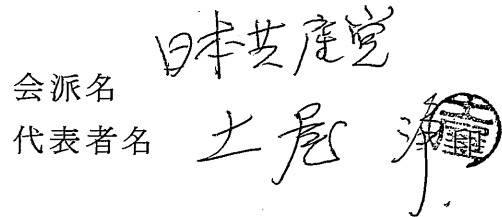 会派名 日本共産党
代表者名 土尾 浄